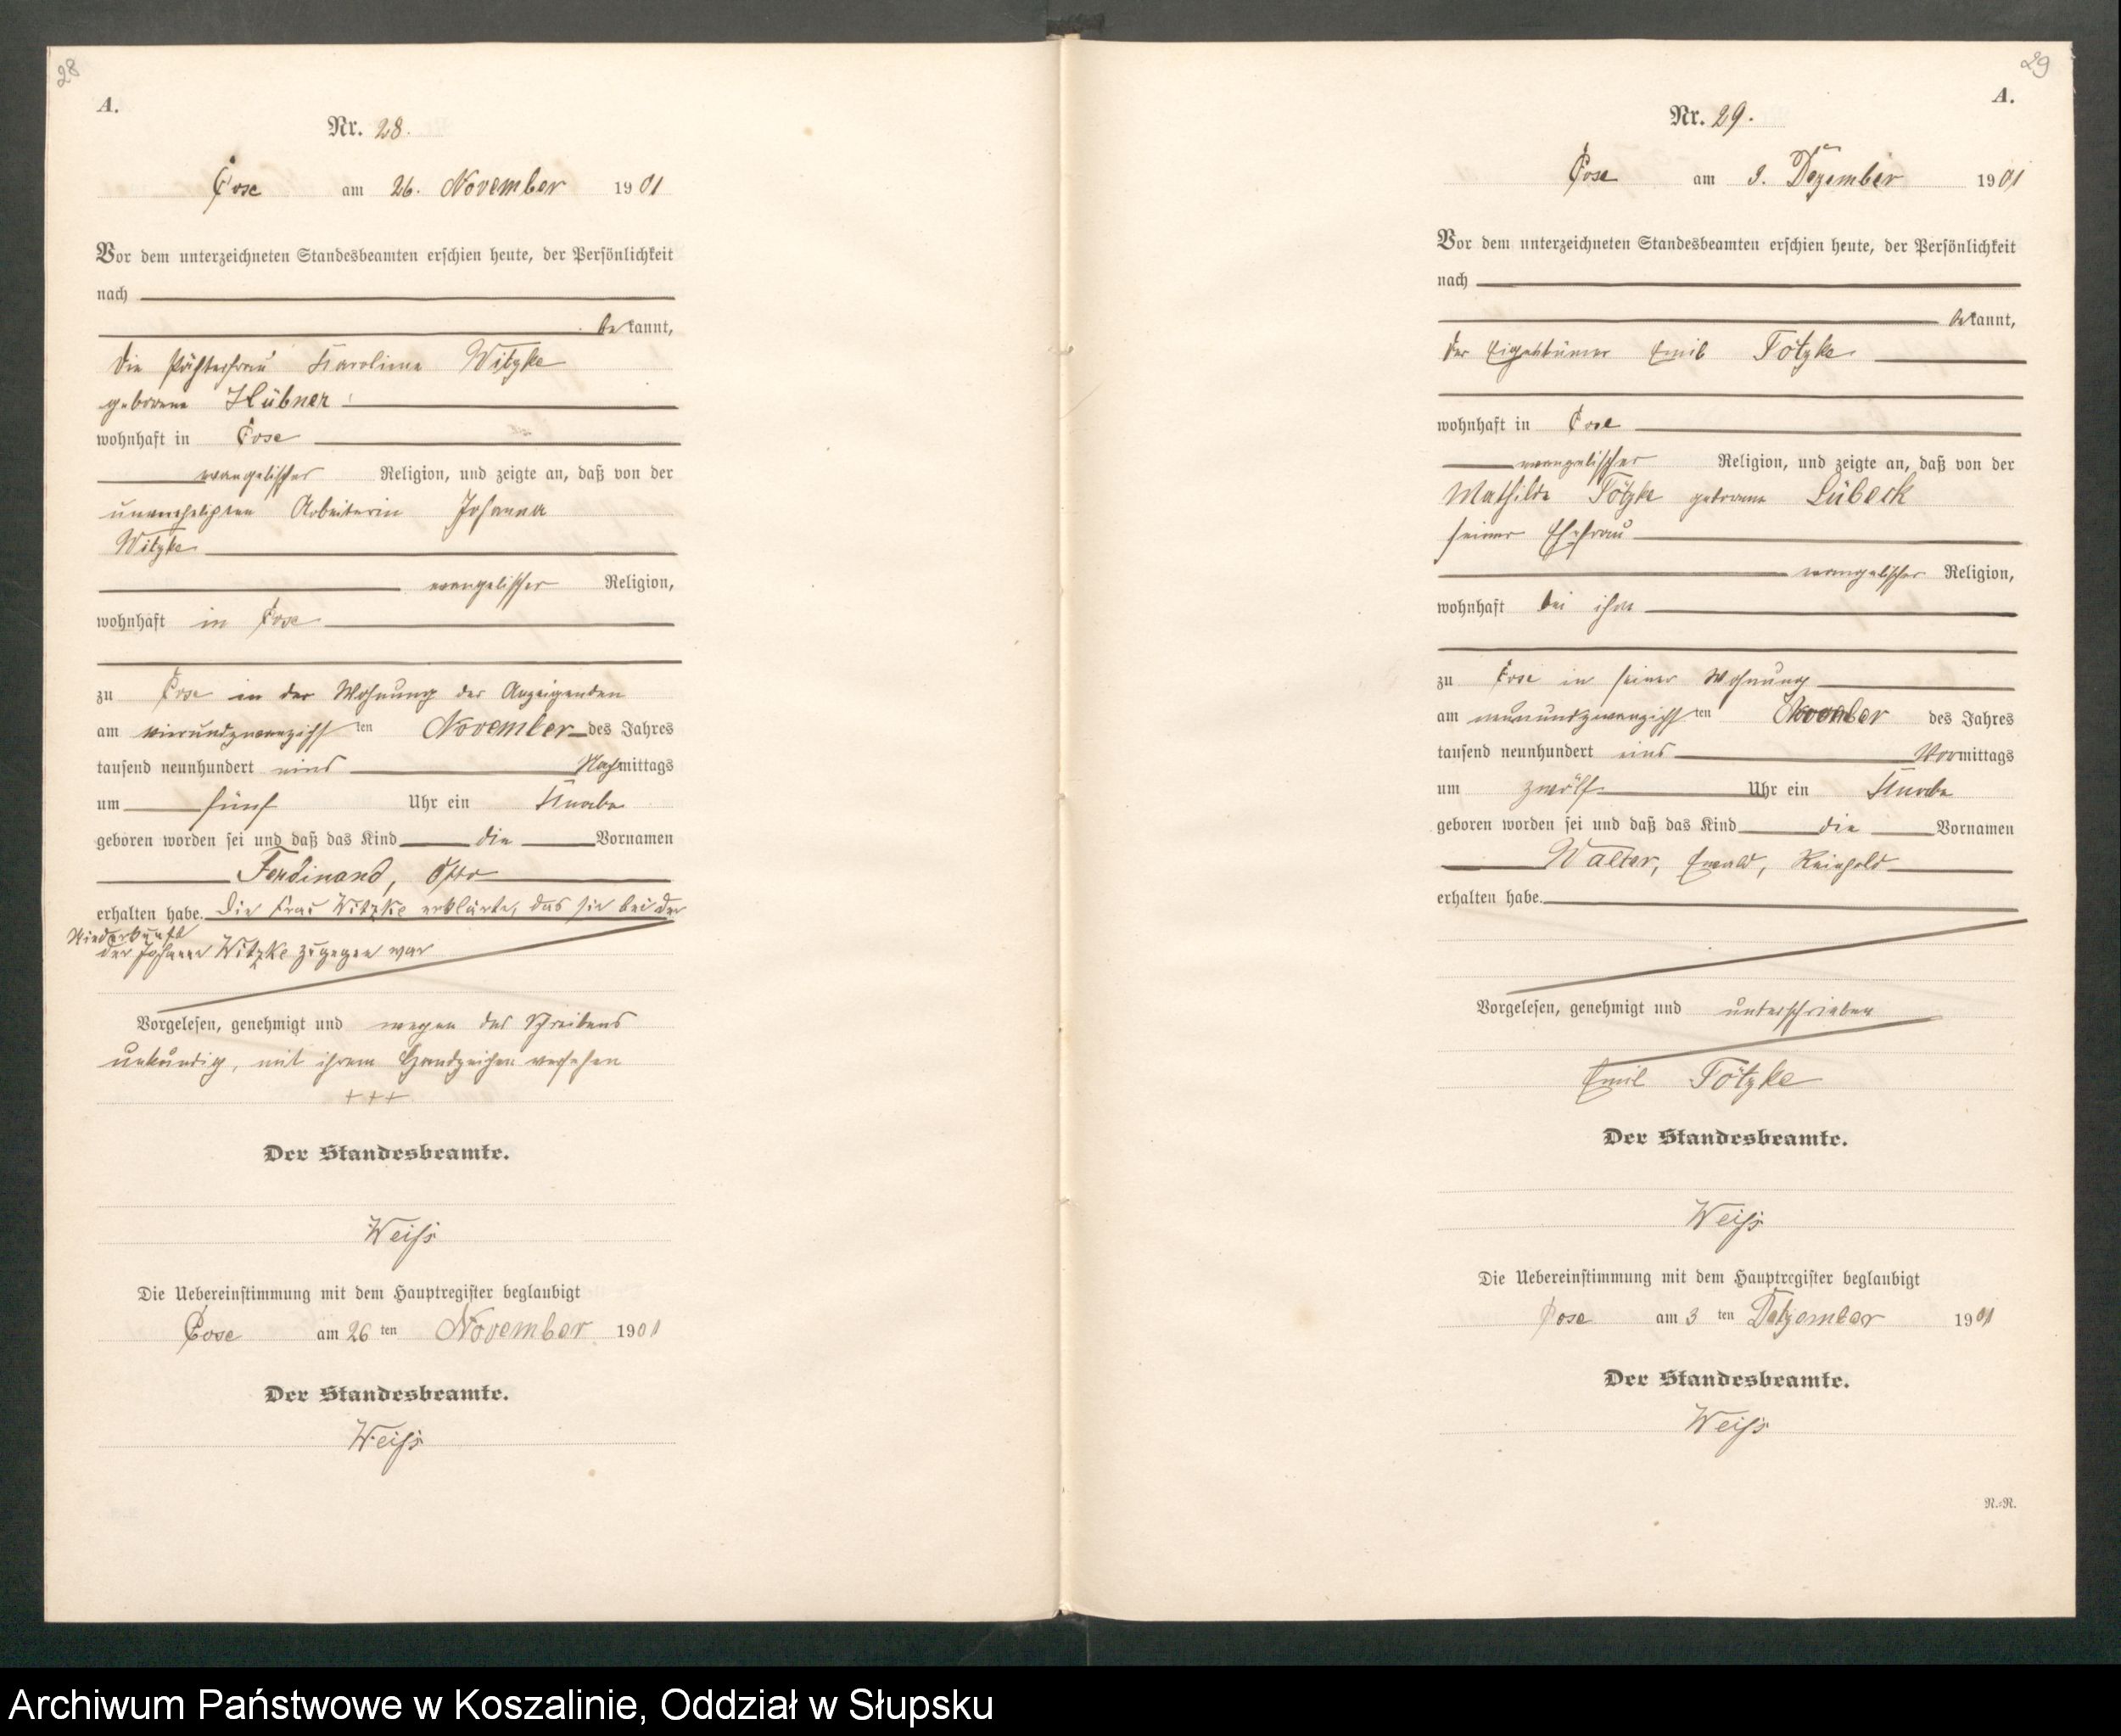 28
A.
Nr. 28.
Cose am 26. November 1901
Vor dem unterzeichneten Standesbeamten erschien heute, der Persönlichkeit
nach
bekannt,
die Pächterfrau Karoline Witzke
geborene Hübner
wohnhaft in Cose
evangelischer Religion, und zeigte an, daß von der
unverehelichten Arbeiterin Johanna
Witzke
evangelischer Religion,
wohnhaft in Cose
zu Cose in der Wohnung der Anzeigenden
am vierundzwanzigsten November des Jahres
tausend neunhundert eins Nachmittags
um fünf Uhr ein Knabe
geboren worden sei und daß das Kind die Vornamen
Ferdinand, Otto
erhalten habe. Die Frau Witzke erklärte, das sie bei der
Niederkunft
der Johanna Witzke zugegen war
Vorgelesen, genehmigt und wegen des Schreibens
unkundig, mit ihrem Handzeichen versehen
+++
Der Standesbeamte.
Weiß
Die Uebereinstimmung mit dem Hauptregister beglaubigt
Cose am 26 ten November 1901
Der Standesbeamte.
Weiß
29
A.
Nr. 29.
Cose am 3. Dezember 1901
Vor dem unterzeichneten Standesbeamten erschien heute, der Persönlichkeit
nach
bekannt,
der Eigenthümer Emil Tötzke
wohnhaft in Cose
evangelischer Religion, und zeigte an, daß von der
Mathilde Tötzke geborene Lübeck
seiner Ehefrau
evangelischer Religion,
wohnhaft bei ihm
zu Cose in seiner Wohnung
am neunundzwanzigsten November des Jahres
tausend neunhundert eins Vormittags
um zwölf Uhr ein Knabe
geboren worden sei und daß das Kind die Vornamen
Walter, Ewald, Reinhold
erhalten habe.
Vorgelesen, genehmigt und unterschrieben
Emil Tötzke
Der Standesbeamte.
Weiß
Die Uebereinstimmung mit dem Hauptregister beglaubigt
Cose am 3 ten Detzember 1901
Der Standesbeamte.
Weiß
N.=R.
Archiwum Państwowe w Koszalinie, Oddział w Słupsku